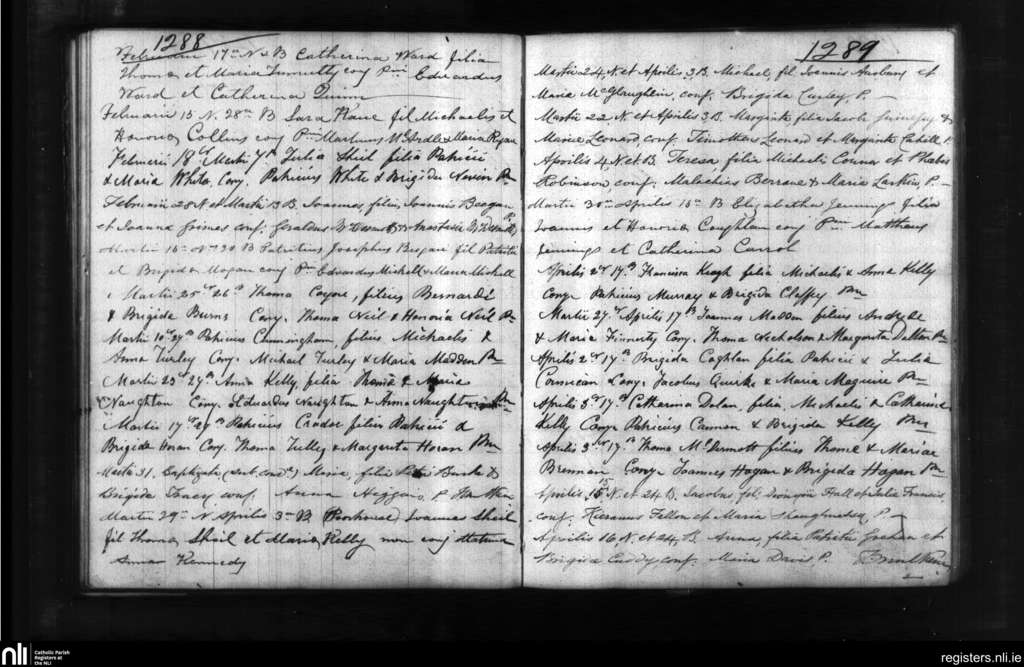 1288
Februarii 17 N & B Catherina Ward filia
Thoma et Maria Finnerty conj Pni Eduardus
Ward et Catherina Quinn
Februarii 15 N. 28 B Sara Kane fil Michaelis et
Honoria Collins conj Pni Martinus McArdle & Maria Ryan
Februarii 18 Martii 7 Julia Shiel filia Patricii
& Maria White, Conj. Patricius White & Brigida Nevin Pni
Februarii 28 N et Martii B. Joannes, filius Joannis Beegan
et Joanna Grimes conj. Geraldus
Martii 16 N 20 B Patritius Josephus Regan fil Patritii
et Brigida Hogan conj Pni Edvardus Mitchell & Maria Mitchell
Martii 25 26 Thoma Coyne, filius Bernardi
& Brigida Burns Conj. Thoma Neil & Honoria Neil Pni
Martii 10 27 Patricius Cunningham, filius Michaelis &
Anna Turley Conj. Michael Turley & Maria Madden Pni
Martii 23 27 Anna Kelly, filia Thoma & Maria
Naughton Conj. Eduardus Naughton & Anna Naughton Pni
Martii 17 29 Patricius filius Patricii &
Brigida Horan Conj. Thoma Tully & Margareta Horan Pni
Martii 31. Baptizata (sub cond.) Maria, filia Burke &
Brigida Tracy conj. Anna Higgins, P.
Martii 29 N Aprilis 3 B (Poorhouse) Joannes Shiel
fil Thoma Shiel et Maria Kelly non conj
Anna Kennedy
1289
Martii 24 N. et Aprilis 3 B. Michael, fil Joannis et
Maria McGlaughlin, conj. Brigida Curley, P.
Martii 22 N. et Aprilis 3 B. Margarita, filia Jacobi &
Maria Leonard, conj. Timotheus Leonard et Margarita Cahill P.
Aprilis 4 N. et B. Teresa, filia Michaelis Connor et
Robinson conj. Malachias Berrane & Maria Larkin, P.
Martii 30 Aprilis 10 B Elizabetha Jennings filia
Joannis et Honoria Coughlan conj Pni Mattheus
Jennings et Catherina Carrol
Aprilis 2 17 Francisca Keogh filia Michaelis & Anna Kelly
Conj. Patricius Murray & Brigida Claffey Pni
Martii 27 Aprilis 17 Joannes Madden filius
& Maria Finnerty Conj. Thoma Nicholson & Margareta Dalton Pni
Aprilis 2 17 Brigida Coghlan filia Patricii & Julia
Connican Conj. Jacobus Quirke & Maria Maguire Pni
Aprilis 3 17 Catherina Dolan, filia, Michaelis & Catherina
Kelly Conj. Patricius Cannon & Brigida Kelly Pni
Aprilis 3 17 Thoma McDermott filius Thomæ & Mariæ
Brennan Conj. Joannes Hagan & Brigida Hagan Pni
Aprilis 15 N. et 24 B. Jacobus fil. Hall et Julia Francis,
conj. Fallon et Maria Shaughnessy, P.
Aprilis 16 N. et 24 B. Anna, filia Patritii et
Brigida Cuddy conj. Maria Davis P.
nli Catholic Parish Registers at the NLI
registers.nli.ie